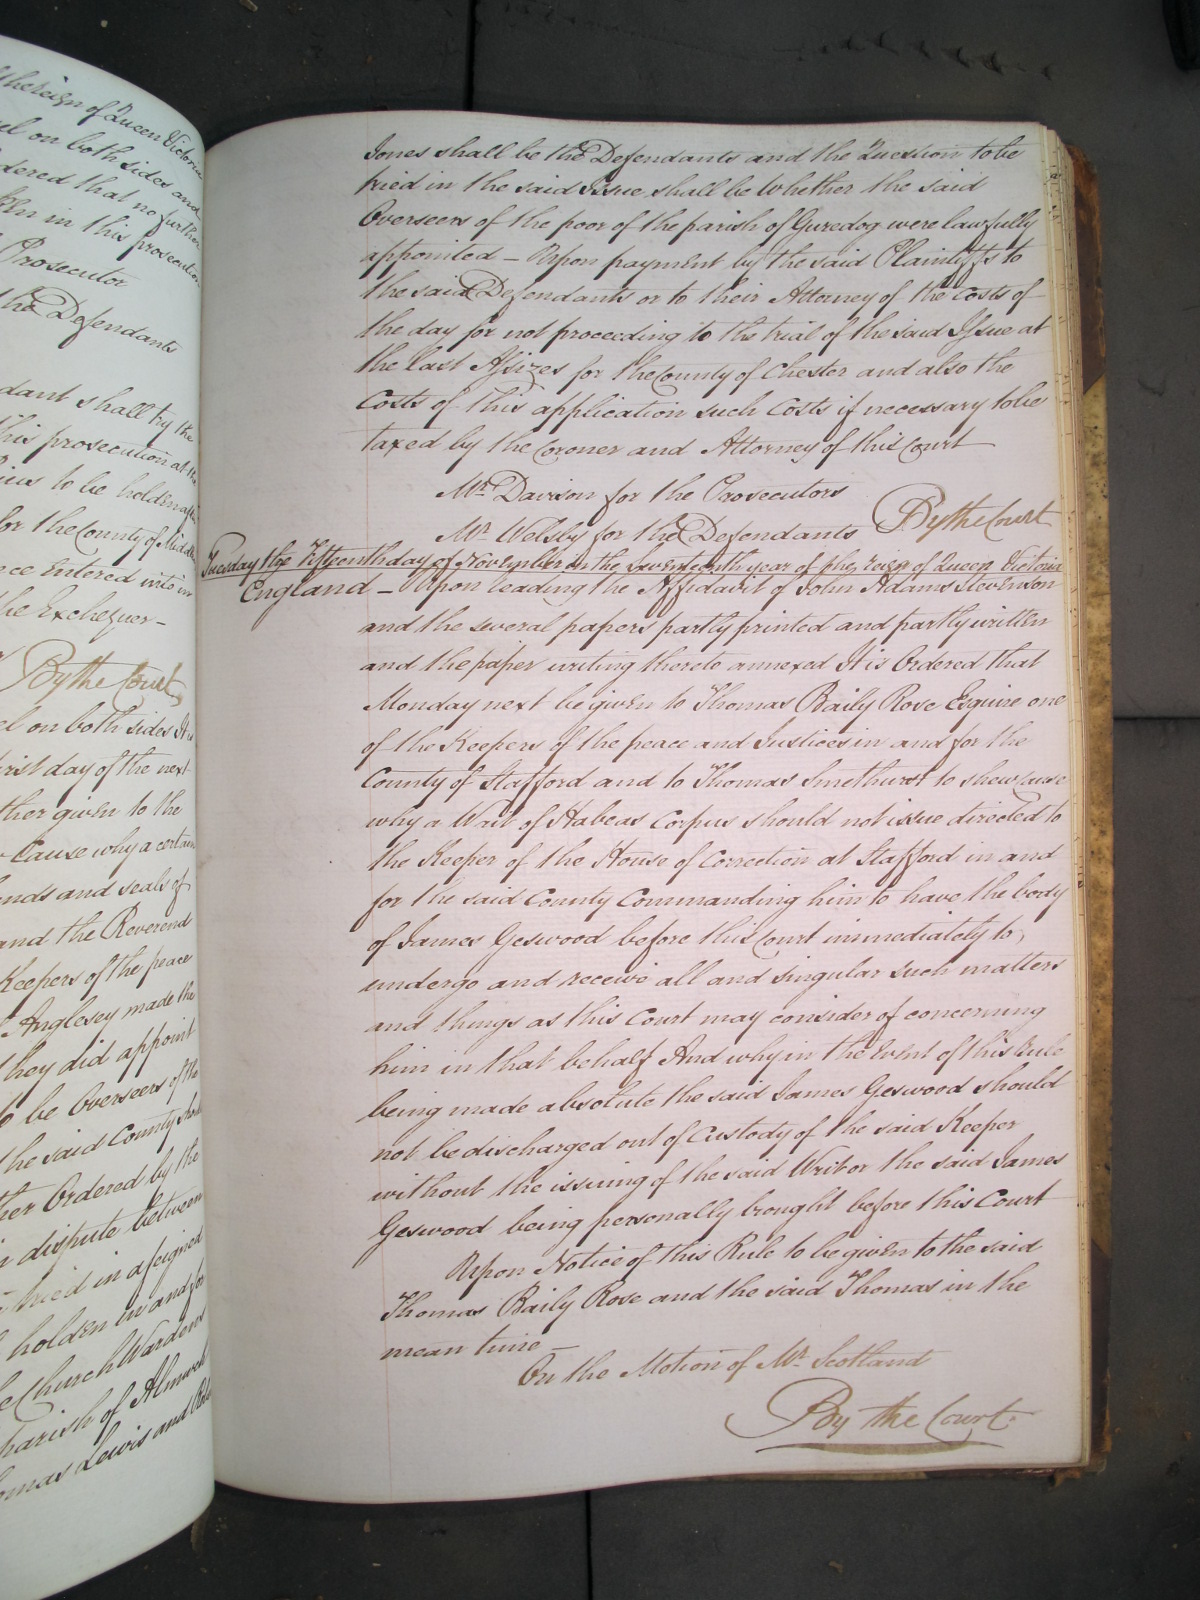 the reign of Queen Victoria
el on both sides and
dered that no further
ken in this prosecution
Prosecutor
the Defendants
dant shall try the
this prosecution at the
ius to be holden after
for the County of Middx
ce Entered into in
the Exchequer –
By the Court
el on both sides It is
first day of the next
ther given to the
Cause why a certain
nds and seals of
and the Reverend
Keepers of the peace
Anglesey made the
they did appoint
to be Overseers of the
the said County should
ther Ordered by the
in dispute between
tried in a feigned
holden in and for
Church Wardens
parish of Almwch
omas Lewis and
Jones shall be the Defendants and the Question to be
tried in the said Issue shall be Whether the said
Overseers of the poor of the parish of Guredog were lawfully
appointed – Upon payment by the said Plaintiffs to
the said Defendants or to their Attorney of the costs of
the day for not proceeding to the trial of the said Issue at
the last Assizes for the County of Chester and also the
Costs of this application such Costs if necessary to be
taxed by the Coroner and Attorney of this Court
Mr Davison for the Prosecutors
Mr Welsby for the Defendants By the Court
Tuesday the Fifteenth day of November in the Seventeenth year of the reign of Queen Victoria
England – Upon reading the Affidavit of John Adams Stevenson
and the several papers partly printed and partly written
and the paper writing thereto annexed It is Ordered that
Monday next be given to Thomas Baily Rose Esquire one
of the Keepers of the peace and Justices in and for the
County of Stafford and to Thomas Smethurst to shew cause
why a Writ of Habeas Corpus should not issue directed to
the Keeper of the House of Correction at Stafford in and
for the said County Commanding him to have the body
of James Geswood before this Court immediately to
undergo and receive all and singular such matters
and things as this Court may consider of concerning
him in that behalf And why in the Event of this Rule
being made absolute the said James Geswood should
not be discharged out of Custody of the said Keeper
without the issuing of the said Writ or the said James
Geswood being personally brought before this Court
Upon Notice of this Rule to be given to the said
Thomas Baily Rose and the said Thomas in the
mean time –
On the Motion of Mr Scotland
By the Court.